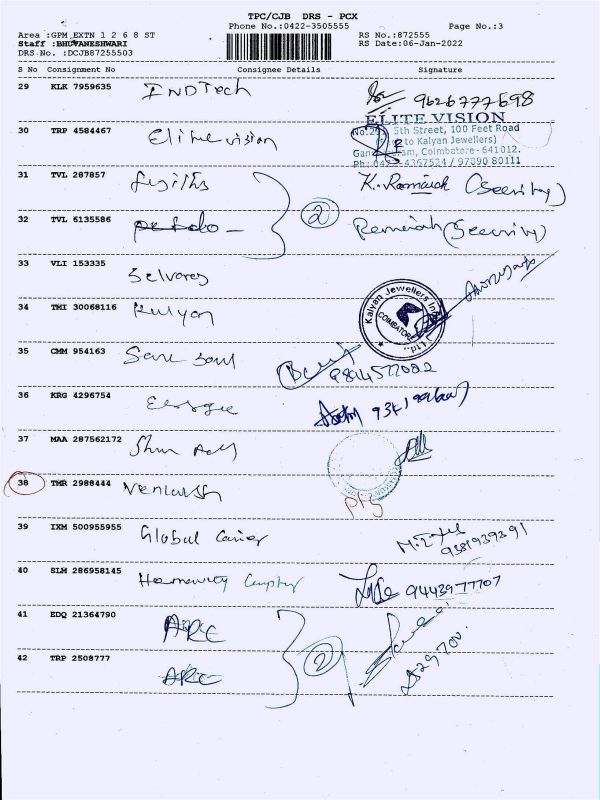 TPC/CJB DRS - PCX
Phone No.:0422-3505555 Page No.:3
Area :GPM,EXTN 1 2 6 8 ST RS No.:872555
Staff :BHUVANESHWARI RS Date:06-Jan-2022
DRS No. :DCJB87255503
S No Consignment No Consignee Details Signature
29 KLK 7959635 INDTech 9626777698
ELITE VISION
30 TRP 4584467 Elite vision No.29 5th Street, 100 Feet Road
to Kalyan Jewellers)
Coimbatore - 641012.
Ph: 0422-4367524 / 97890 80111
31 TVL 287857 K. Ramaiah (Security)
32 TVL 6135586 2 Ramaiah (Security)
33 VLI 153335 Selvaraj
34 TMI 30068116 Kalyan Kalyan Jewellers India Ltd., COIMBATORE
35 CMM 954163
36 KRG 4296754 George
37 MAA 287562172
38 TMR 2988444 Venkatesh
39 IXM 500955955 Global Carrier 9381939391
40 SLM 286958145 9443977707
41 EDQ 21364790 ARC
2
42 TRP 2508777 ARC